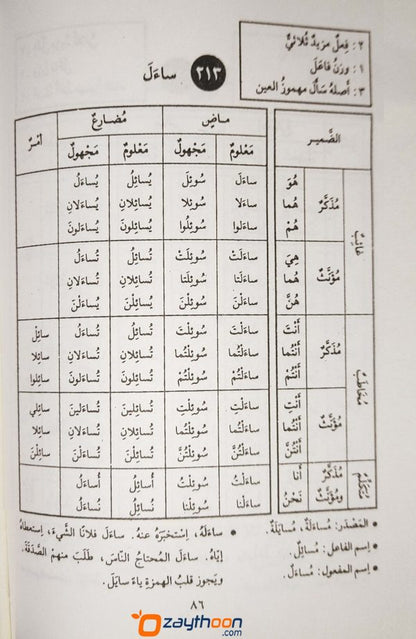 ٢: فِعلٌ مَزيدٌ ثُلاثيٌّ
١: وَزنُ فاعَلَ
٣: أصلهُ سَأَلَ مهموزُ العين
٢١٣ ساءَلَ
الضَّمير ماضٍ مُضارعٌ أمْرٌ
مَعلومٌ مَجْهولٌ مَعلومٌ مَجْهولٌ
غائِبٌ مُذَكَّرٌ هُوَ ساءَلَ سُوئِلَ يُسائِلُ يُساءَلُ
هُما ساءَلا سُوئِلا يُسائِلانِ يُساءَلانِ
هُمْ ساءَلوا سُوئِلُوا يُسائِلونَ يُساءَلونَ
مُؤنَّثٌ هِيَ ساءَلَتْ سُوئِلَتْ تُسائِلُ تُساءَلُ
هُما ساءَلَتا سُوئِلَتا تُسائِلانِ تُساءَلانِ
هُنَّ ساءَلْنَ سُوئِلْنَ يُسائِلْنَ يُساءَلْنَ
مُخاطَبٌ مُذَكَّرٌ أنْتَ ساءَلْتَ سُوئِلْتَ تُسائِلُ تُساءَلُ سائِلْ
أنْتُما ساءَلْتُما سُوئِلْتُما تُسائِلانِ تُساءَلانِ سائِلا
أنْتُمْ ساءَلْتُمْ سُوئِلْتُمْ تُسائِلونَ تُساءَلونَ سائِلوا
مُؤنَّثٌ أنْتِ ساءَلْتِ سُوئِلْتِ تُسائِلينَ تُساءَلينَ سائِلي
أنْتُما ساءَلْتُما سُوئِلْتُما تُسائِلانِ تُساءَلانِ سائِلا
أنْتُنَّ ساءَلْتُنَّ سُوئِلْتُنَّ تُسائِلْنَ تُساءَلْنَ سائِلْنَ
مُتكَلِّمٌ مُذَكَّرٌ أنا ساءَلْتُ سُوئِلْتُ أُسائِلُ أُساءَلُ
ومُؤنَّثٌ نَحْنُ ساءَلْنا سُوئِلْنا نُسائِلُ نُساءَلُ
• المَصْدَر: مُساءَلَةٌ. مُسايَلَةٌ.
• إسم الفاعل: مُسائِلٌ.
• إسم المفعول: مُساءَلٌ.
• ساءَلَهُ، إستَخبَرَهُ عنهُ. ساءَلَ فلانًا الشَّيءَ، إستعطاهُ
إيّاهُ. ساءَلَ المُحتاجُ النّاسَ، طَلَبَ منهمِ الصَّدَقَةَ.
ويَجوز قلبُ الهمزةِ ياءً سايَلَ.
٨٦
zaythoon
.com